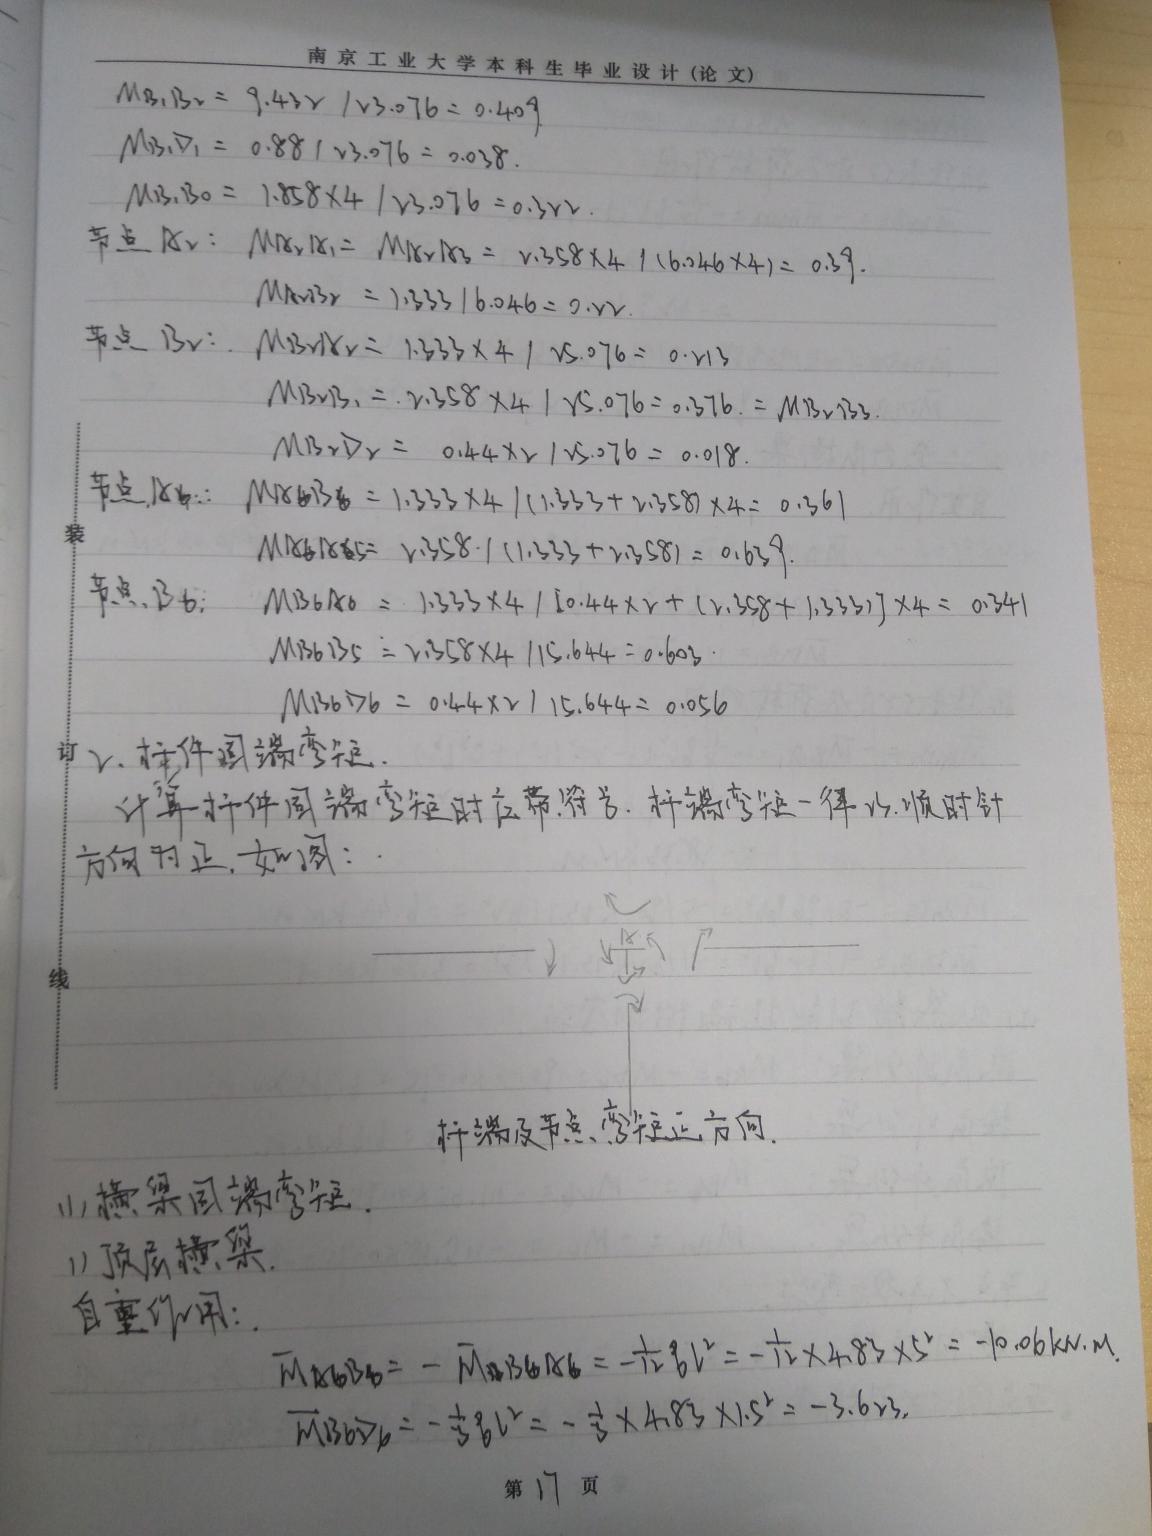 南京工业大学本科生毕业设计(论文)
MB₁B₂ = 9.432 / 23.076 = 0.409
MB₁D₁ = 0.88 / 23.076 = 0.038.
MB₁B₀ = 1.858×4 / 23.076 = 0.322.
节点A₂: MA₂A₁ = MA₂A₃ = 2.358×4 / (6.046×4) = 0.39.
MA₂B₂ = 1.333 / 6.046 = 0.22.
节点B₂: MB₂A₂ = 1.333×4 / 25.076 = 0.213
MB₂B₁ = 2.358×4 / 25.076 = 0.376. = MB₂B₃.
MB₂D₂ = 0.44×2 / 25.076 = 0.018.
节点A₆: MA₆B₆ = 1.333×4 / (1.333+2.358)×4 = 0.361
MA₆A₅ = 2.358 / (1.333+2.358) = 0.639.
节点B₆: MB₆A₆ = 1.333×4 / [0.44×2+(2.358+1.333)]×4 = 0.341
MB₆B₅ = 2.358×4 / 15.644 = 0.603.
MB₆D₆ = 0.44×2 / 15.644 = 0.056
2、杆件固端弯矩.
计算杆件固端弯矩时应带符号.杆端弯矩一律以顺时针
方向为正,如图:
A
杆端及节点弯矩正方向.
(1)横梁固端弯矩.
1)顶层横梁.
自重作用:
M̄A₆B₆ = -M̄B₆A₆ = -1/12 ql² = -1/12×4.83×5² = -10.06kN.M.
M̄B₆D₆ = -1/3 ql² = -1/3×4.83×1.5² = -3.623.
第17页
装
订
线